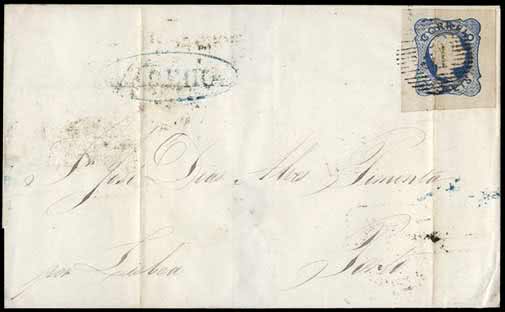 CORREIO
1
Sr José Dias Alves Pimenta
por Lisboa Porto